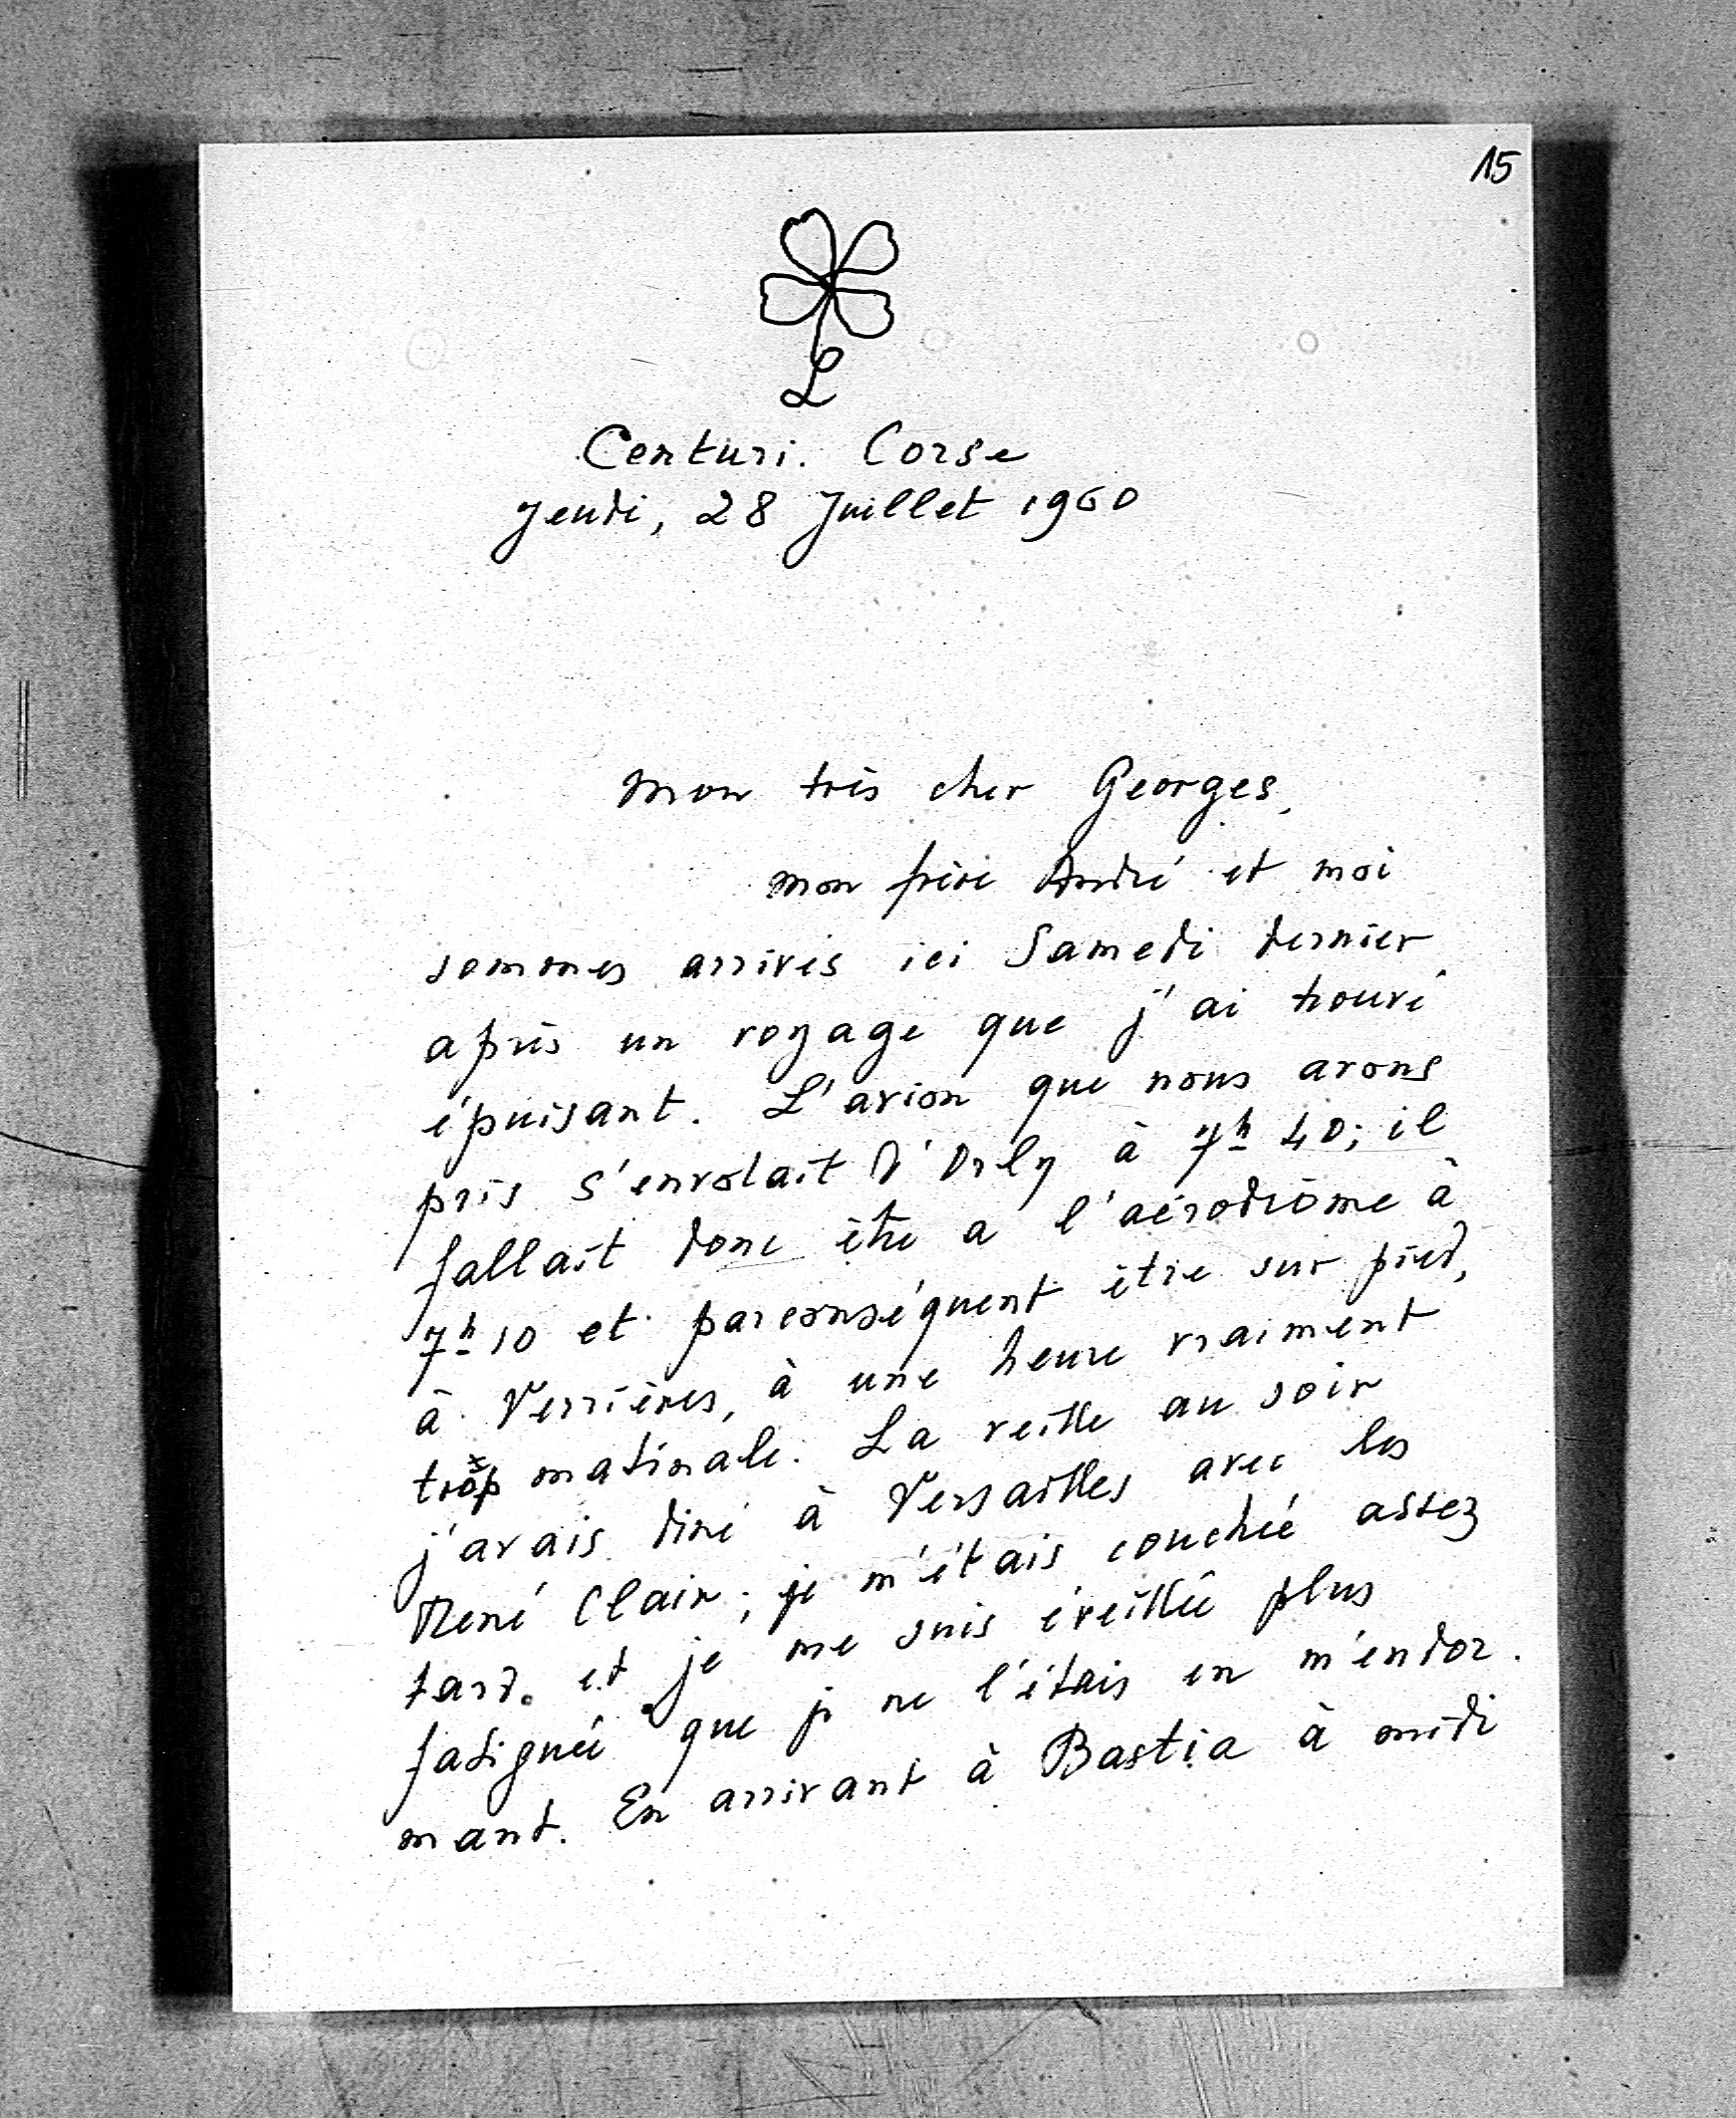 15
L
Centuri. Corse
Jeudi, 28 Juillet 1960
Mon très cher Georges,
Mon frère André et moi
sommes arrivés ici Samedi dernier,
après un voyage que j'ai trouvé
épuisant. L'avion que nous avons
pris s'envolait d'Orly à 7h 40; il
fallait donc être a l'aérodrôme à
7h 10 et parconséquent être sur pied,
à Verrières, à une heure vraiment
trop matinale. La veille au soir
j'avais diné à Versailles avec les
René Clair; je m'étais couchée assez
tard. et je me suis éveillée plus
fatiguée que je ne l'étais en m'endor.
mant. En arrivant à Bastia à midi